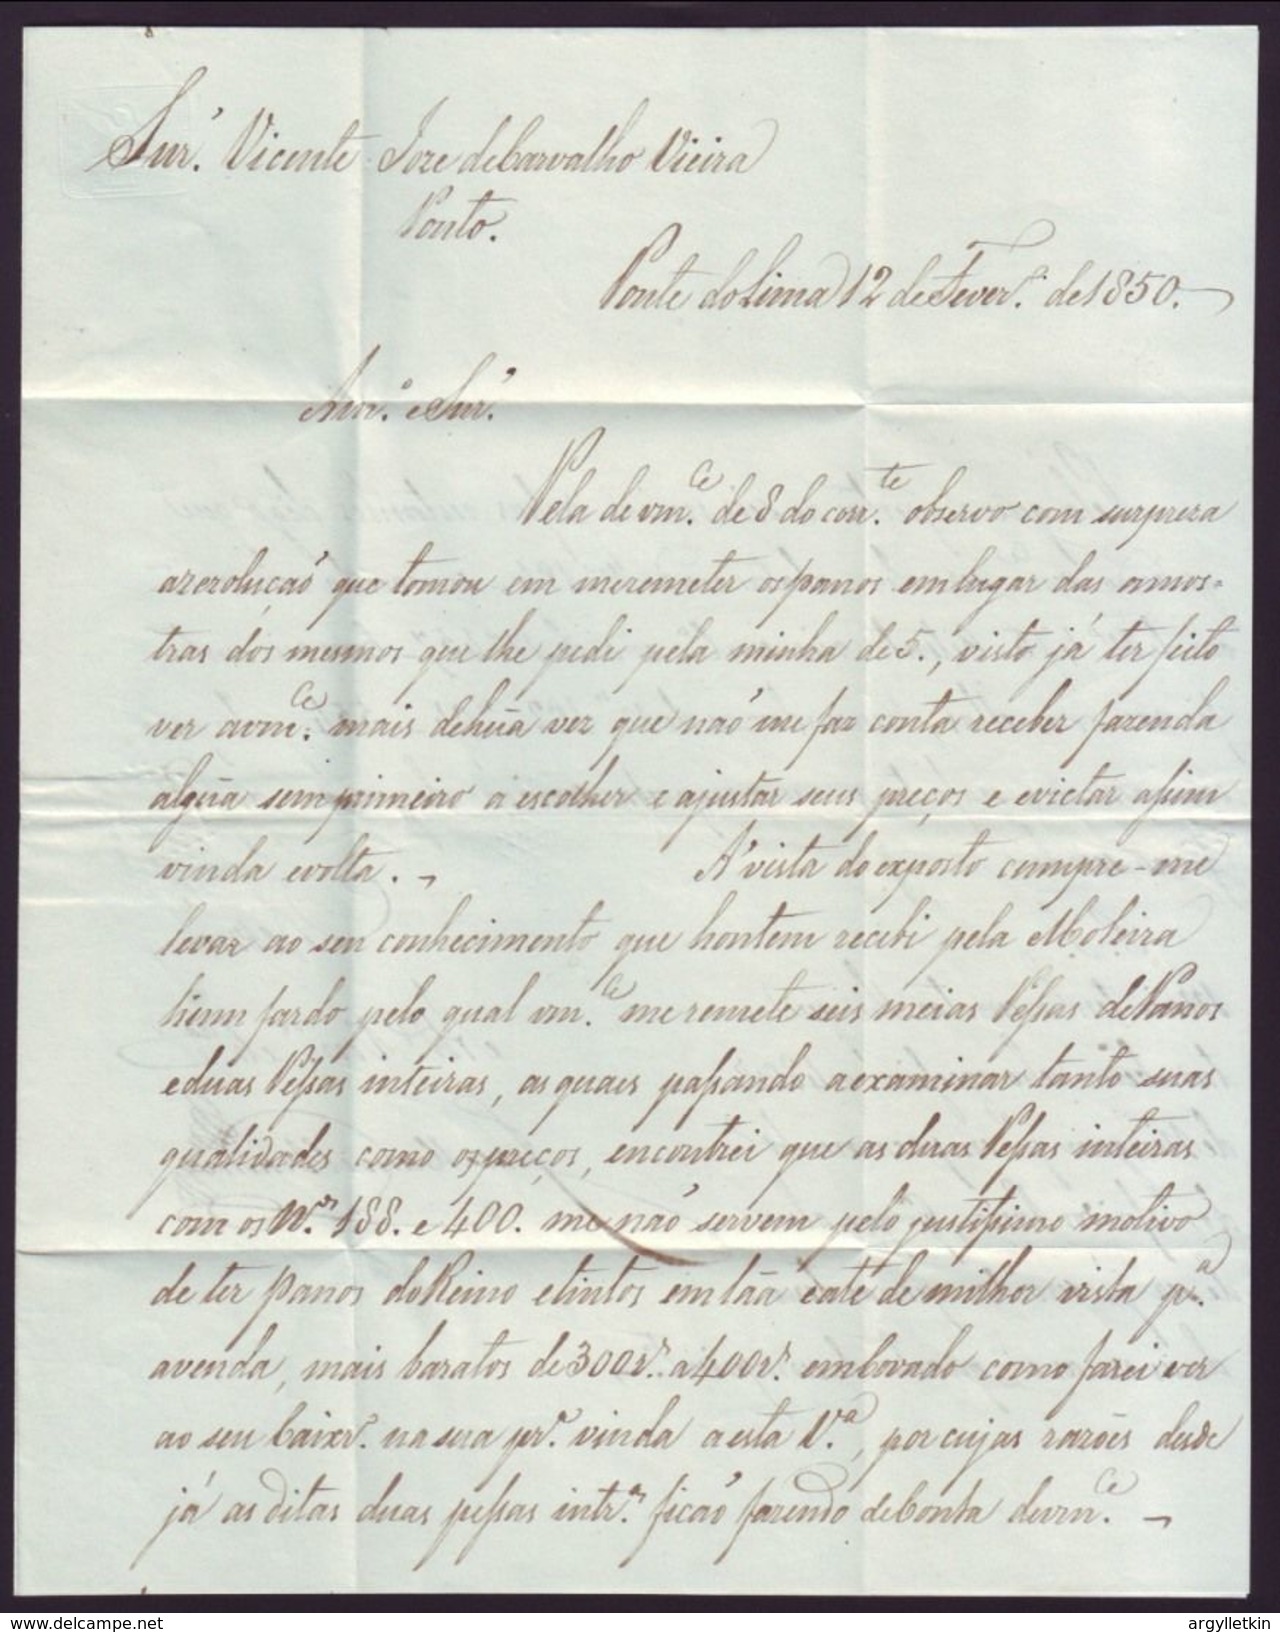 Snr. Vicente Joze de Carvalho Vieira
Porto.
Ponte do Lima 12 de Fever.º de 1850.
Am.º e Snr.
Pela de vm.ce de 8 do corr.te observo com surpreza
a rezolucaõ que tomou em me remeter os panos em lugar das amos=
tras dos mesmos que lhe pedi pela minha de 5., visto já ter feito
ver a vm.ce mais de hũa vez que naõ me faz conta receber fazenda
algũa sem primeiro a escolher e ajustar seus preços e evictar assim
vinda e volta. A' vista do exposto cumpre-me
levar ao seu conhecimento que hontem recebi pela Moleira
hum fardo pelo qual vm.ce me remete seis meias Pessas de Panos
e duas Pessas inteiras, as quaes passando a examinar tanto suas
qualidades como os preços, encontrei que as duas Pessas inteiras
com os N.os 188. e 400. me naõ servem pelo justissimo motivo
de ter panos do Reino e tintos em lãa e até de milhor vista p.a
a venda, mais baratos de 300 r.s a 400 r.s em covado como farei ver
ao seu Caixr.º na sua pr.a vinda a esta V.a, por cujas razões desde
já as ditas duas pessas intr.as ficaõ fazendo de Conta de vm.ce
argylletkin